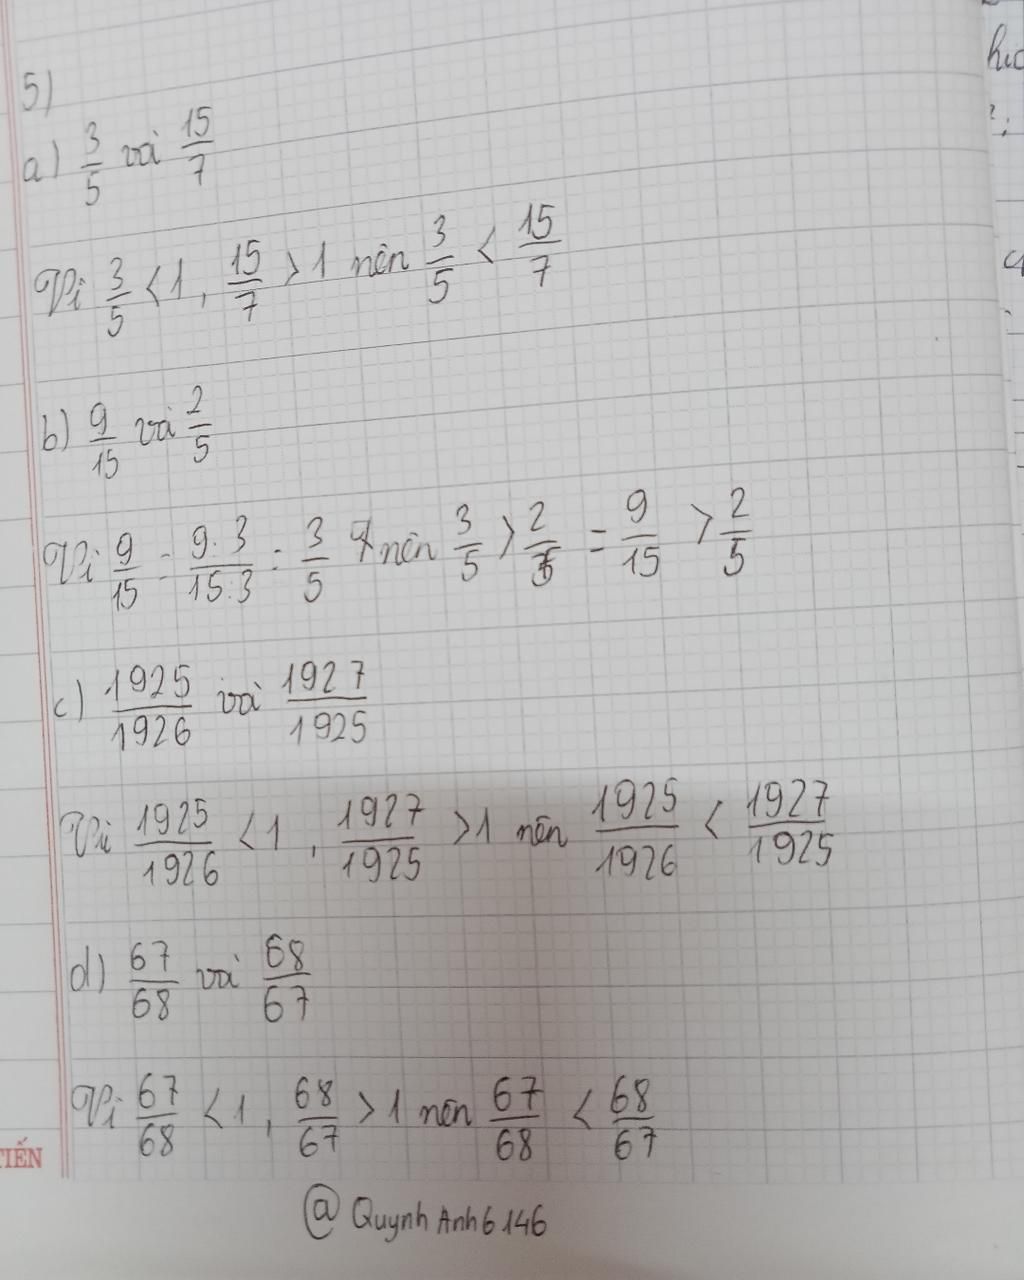 5)
a) 3/5 và 15/7
Vì 3/5 < 1, 15/7 > 1 nên 3/5 < 15/7
b) 9/15 và 2/5
Vì 9/15 = 9:3/15:3 = 3/5 nên 3/5 > 2/5 = 9/15 > 2/5
c) 1925/1926 và 1927/1925
Vì 1925/1926 < 1, 1927/1925 > 1 nên 1925/1926 < 1927/1925
d) 67/68 và 68/67
Vì 67/68 < 1, 68/67 > 1 nên 67/68 < 68/67
TIẾN
@QuynhAnh6146